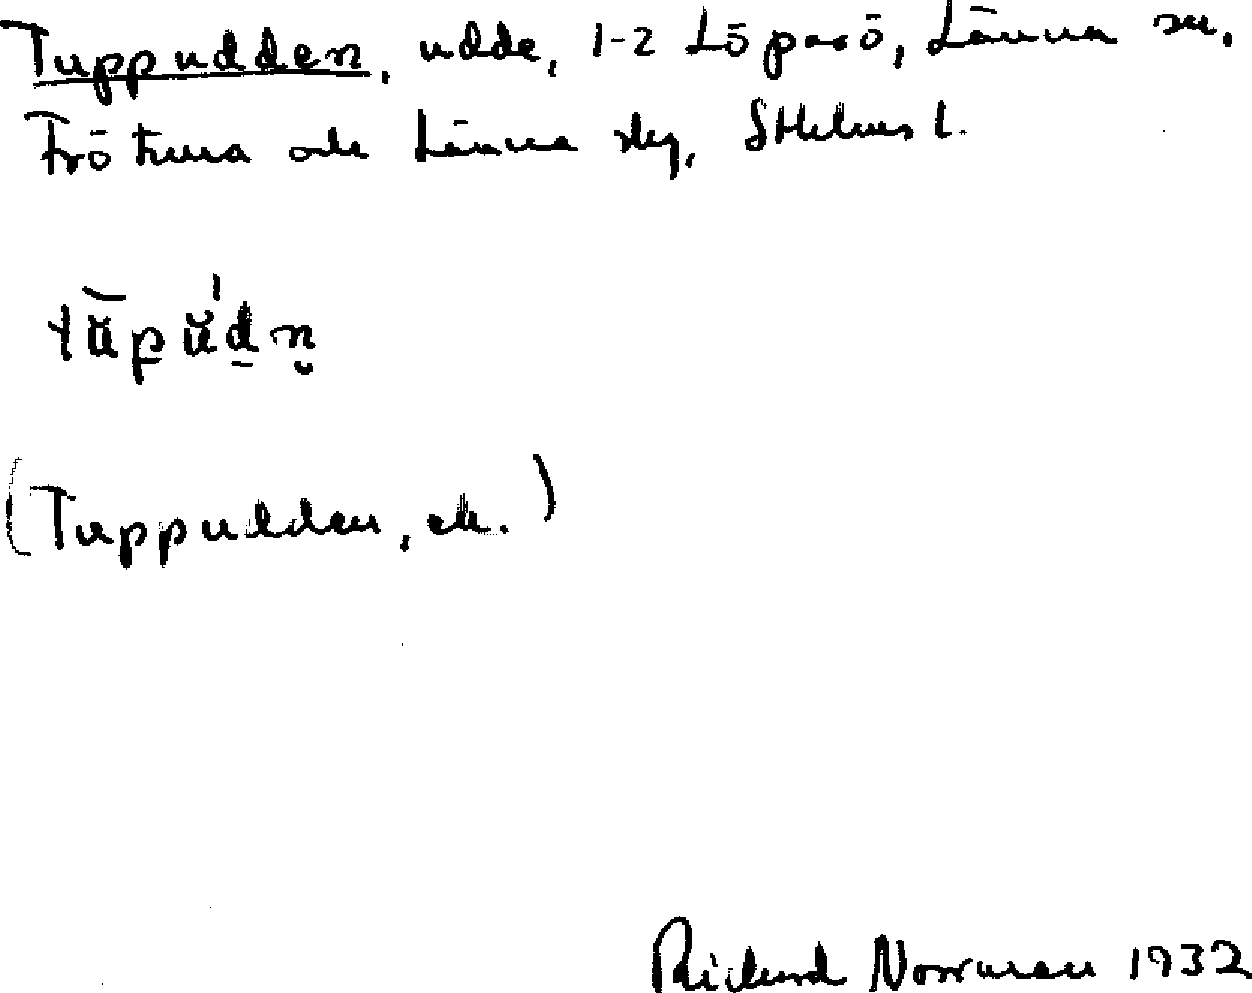 Tuppudden, udde, 1-2 Löparö, Länna sn,
Frötuna och Länna slg, Sthlms l.
tŭpŭ'dn
(Tuppudden, ek.)
Rickard Norrman 1932